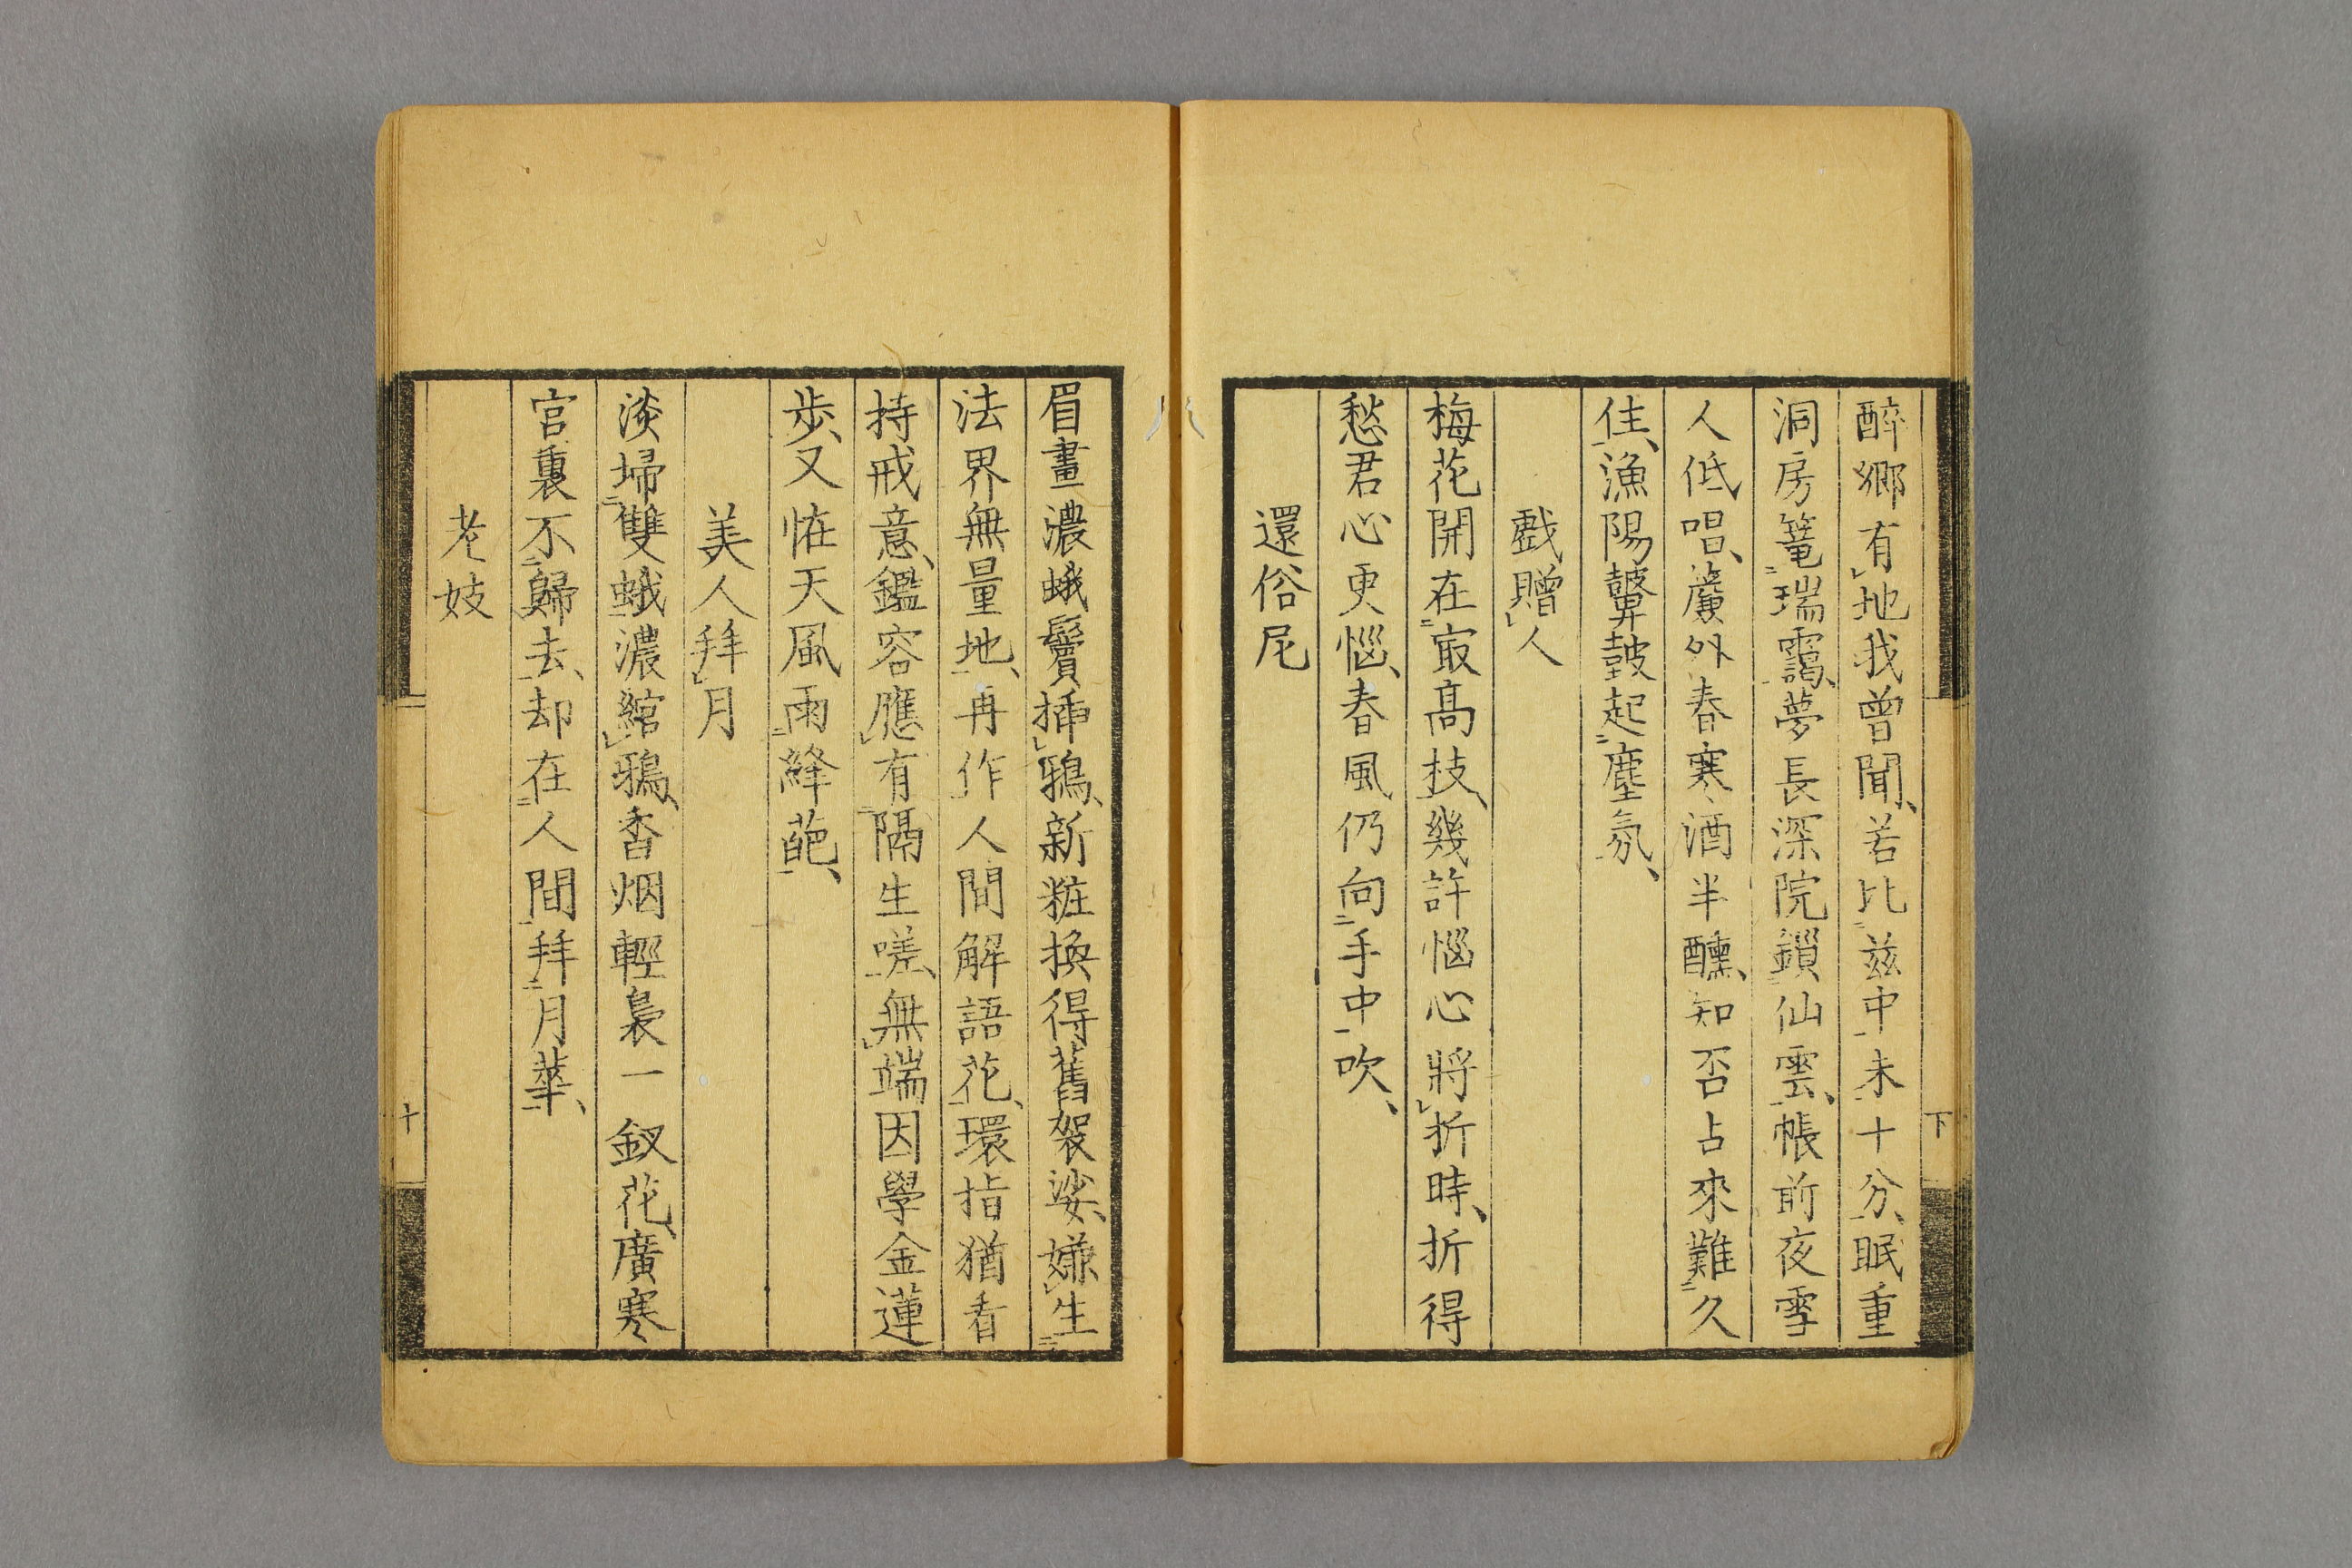 下
醉郷有地我曾聞、若比茲中未十分、眠重
洞房篭瑞靄、夢長深院鎖仙雲、帳前夜雪
人低唱、簾外春寒酒半醺、知否占來難久
住、漁陽鼙鼓起塵氛、
戯贈人
梅花開在㝡髙枝、幾許惱心將折時、折得
愁君心更惱、春風仍向手中吹、
還俗尼
眉畫濃蛾鬢挿鴉、新粧換得舊袈娑、嫌生
法界無量地、再作人間解語花、環指猶看
持戒意、鑑容應有隔生嗟、無端因學金蓮
歩、又恠天風雨絳葩、
美人拜月
淡埽雙蛾濃綰鴉、香烟輕裊一釵花、廣寒
宮裏不歸去、却在人間拜月華、
老妓
十